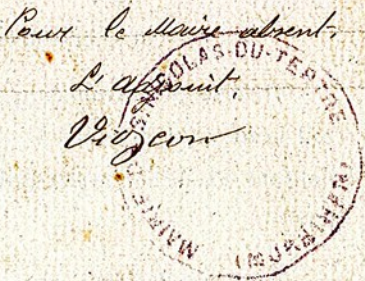 Pour le Maire absent.
L'adjoint,
MAIRIE DE ST-NICOLAS-DU-TERTRE
(MORBIHAN)